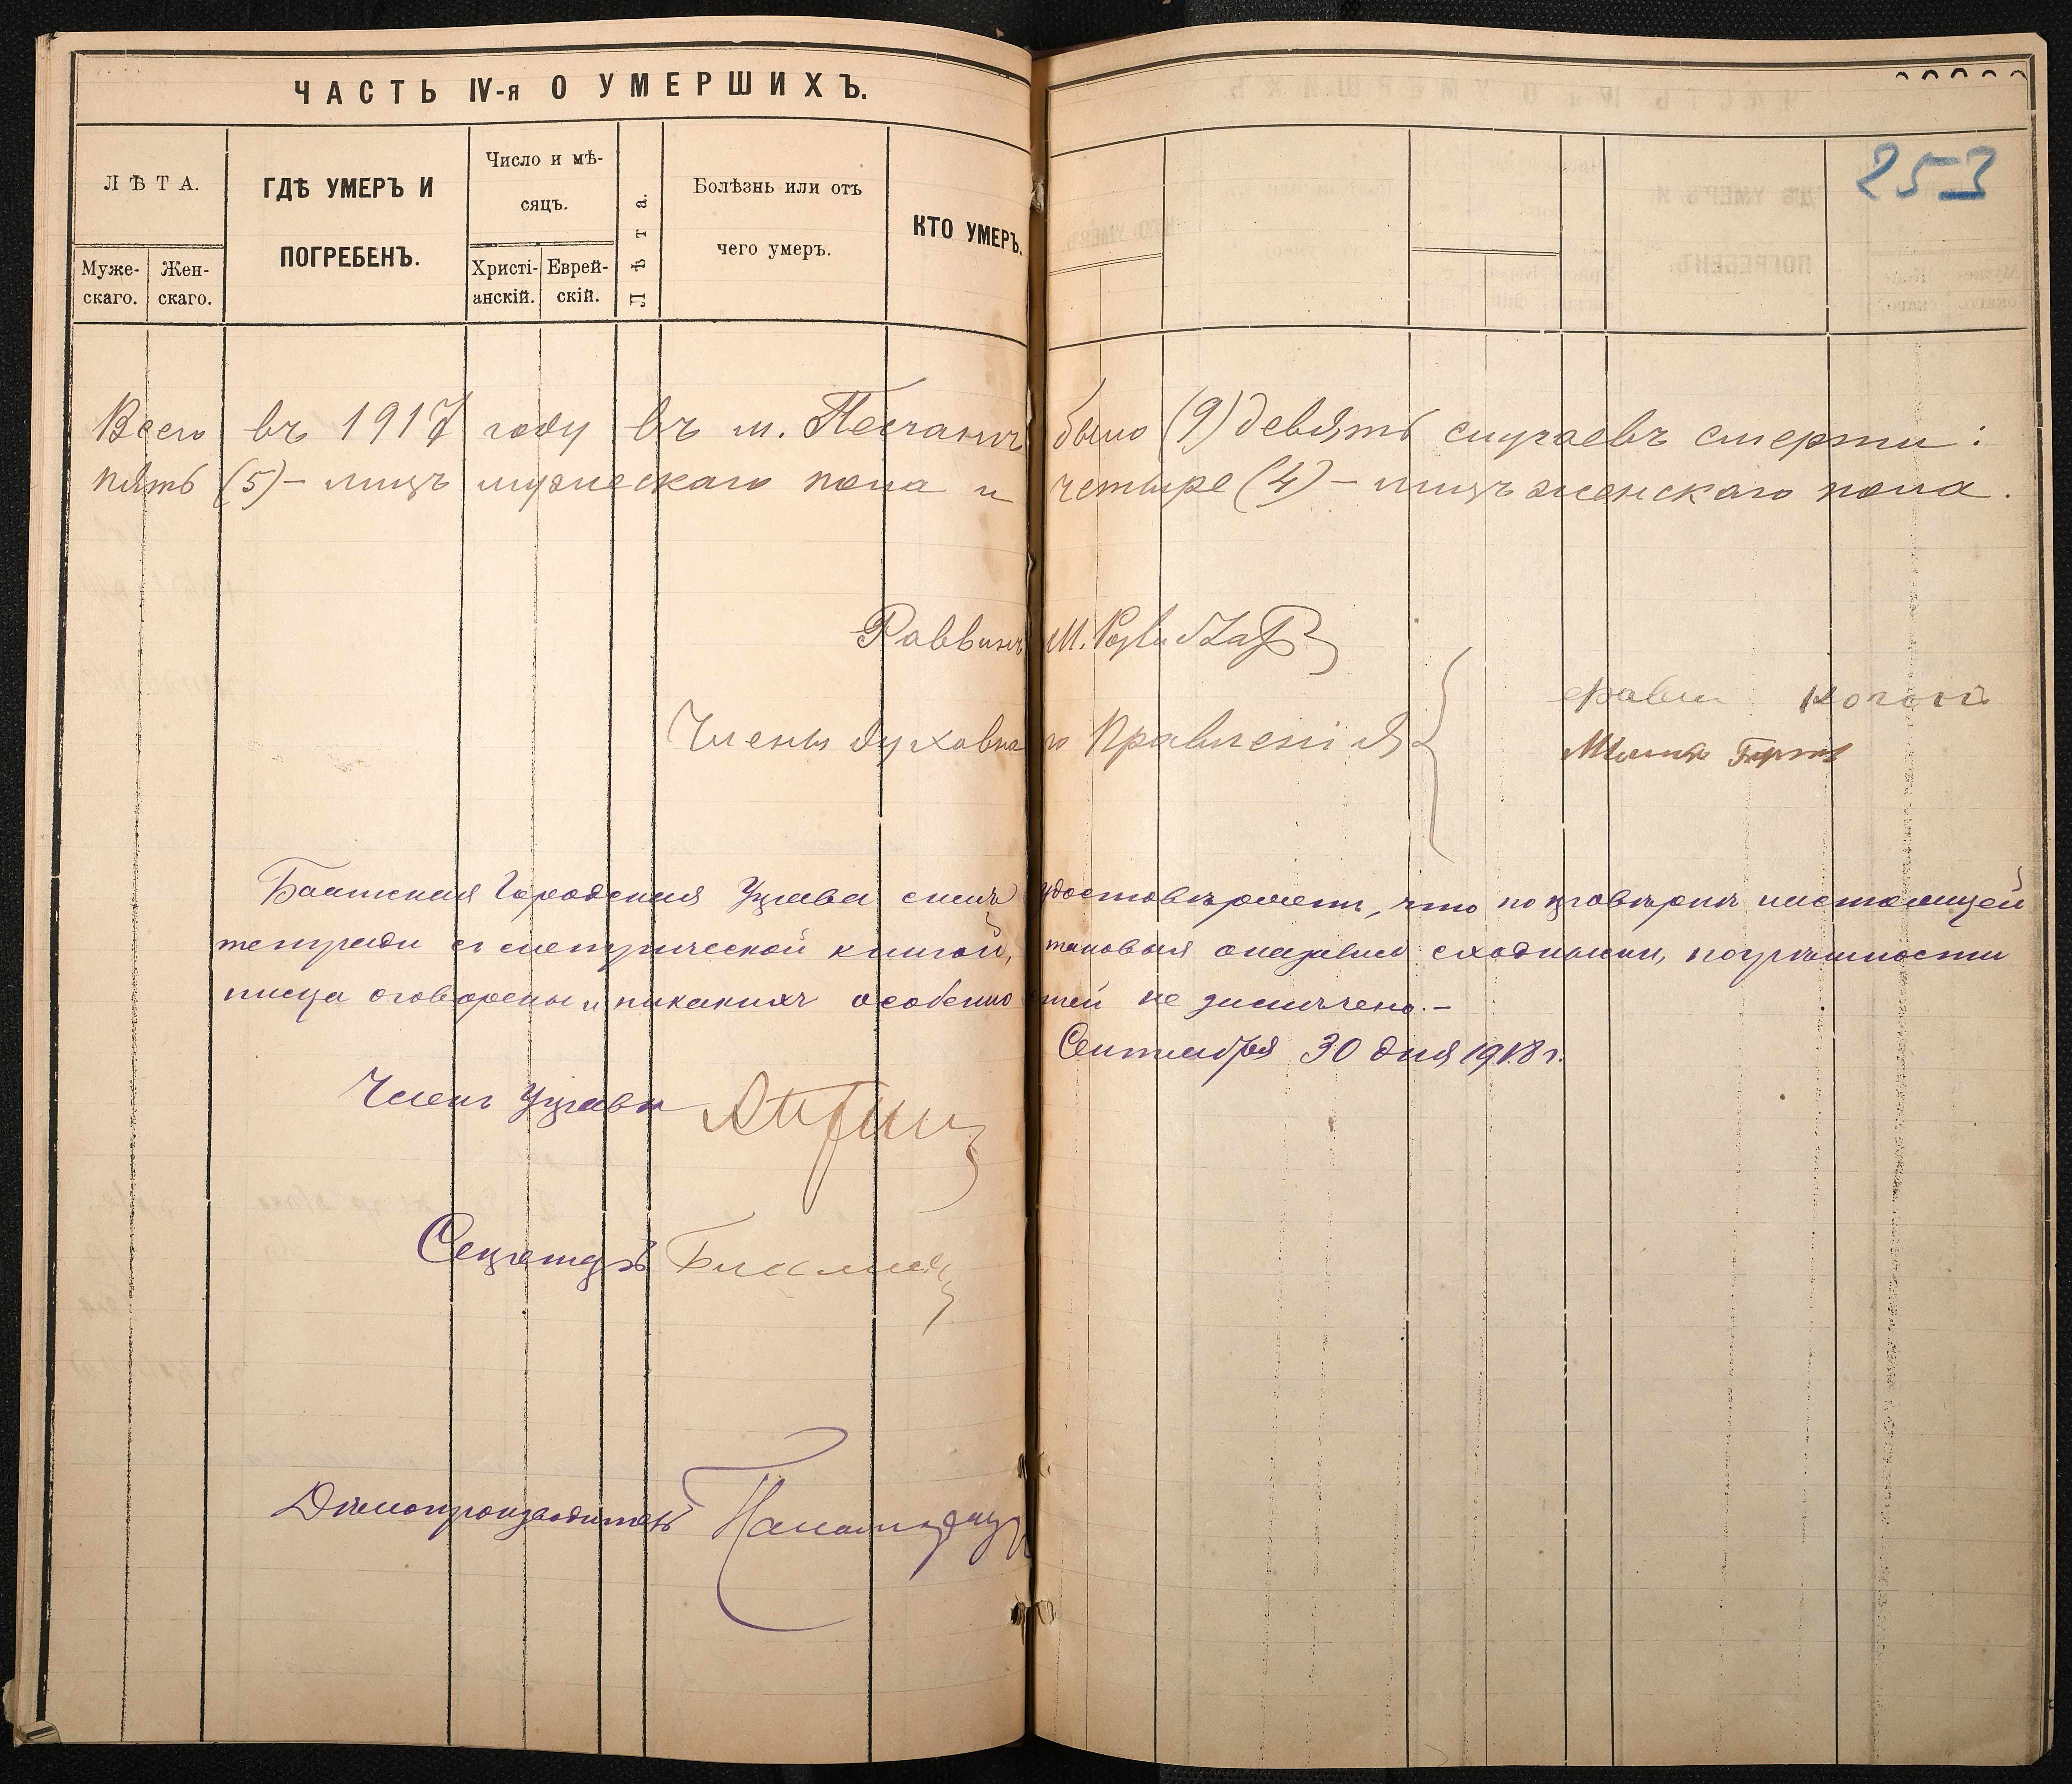 ЧАСТЬ IV-я О УМЕРШИХЪ.
253
ЛѢТА.
Муже-
скаго.
Жен-
скаго.
ГДѢ УМЕРЪ И
ПОГРЕБЕНЪ.
Число и мѣ-
сяцъ.
Христі-
анскій.
Еврей-
скій.
Лѣта.
Болѣзнь или отъ
чего умеръ.
КТО УМЕРЪ.
Всего въ 1917 году въ м. Песчанкѣ было (9) девять случаевъ смерти:
пять (5) – лицъ мужескаго пола и четыре (4) – лицъ женскаго пола.
Раввинъ М.
Члены духовнаго Правленія
Коганъ
Балтская Городская Управа симъ удостовѣряетъ, что по провѣркѣ настоящей
тетради съ метрической книгой, таковыя оказались сходными, погрѣшности
писца оговорены и никакихъ особенностей не замѣчено.–
Сентября 30 дня 1918 г.
Членъ Управы
Секретарь
Дѣлопроизводитель